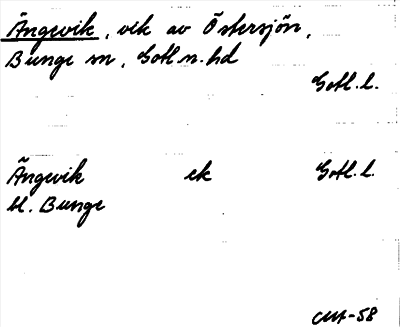 Ängevik, vik av Östersjön,
Bunge sn, Gotl n. hd
Gotl. l.
Ängevik ek Gotl. l.
bl. Bunge
-58